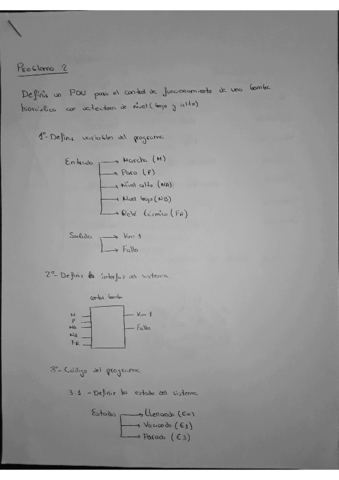 Problema 2
Definir un POU para el control de funcionamiento de una bomba
con detectores de nivel (bajo y alto)
1º- Definir variables del programa
Entrada → Marcha (M)
→ Paro (P)
→ Nivel alto (NA)
→ Nivel bajo (NB)
→ Relé térmico (FR)
Salida → Km 1
→ Fallo
2º- Definir la interfaz del sistema
control bomba
M
P
NA
NB
FR
Km 1
Fallo
3º- Código del programa
3.1 - Definir los estados del sistema
Estados → Llenando (E0)
→ Vaciando (E1)
→ Parado (E3)